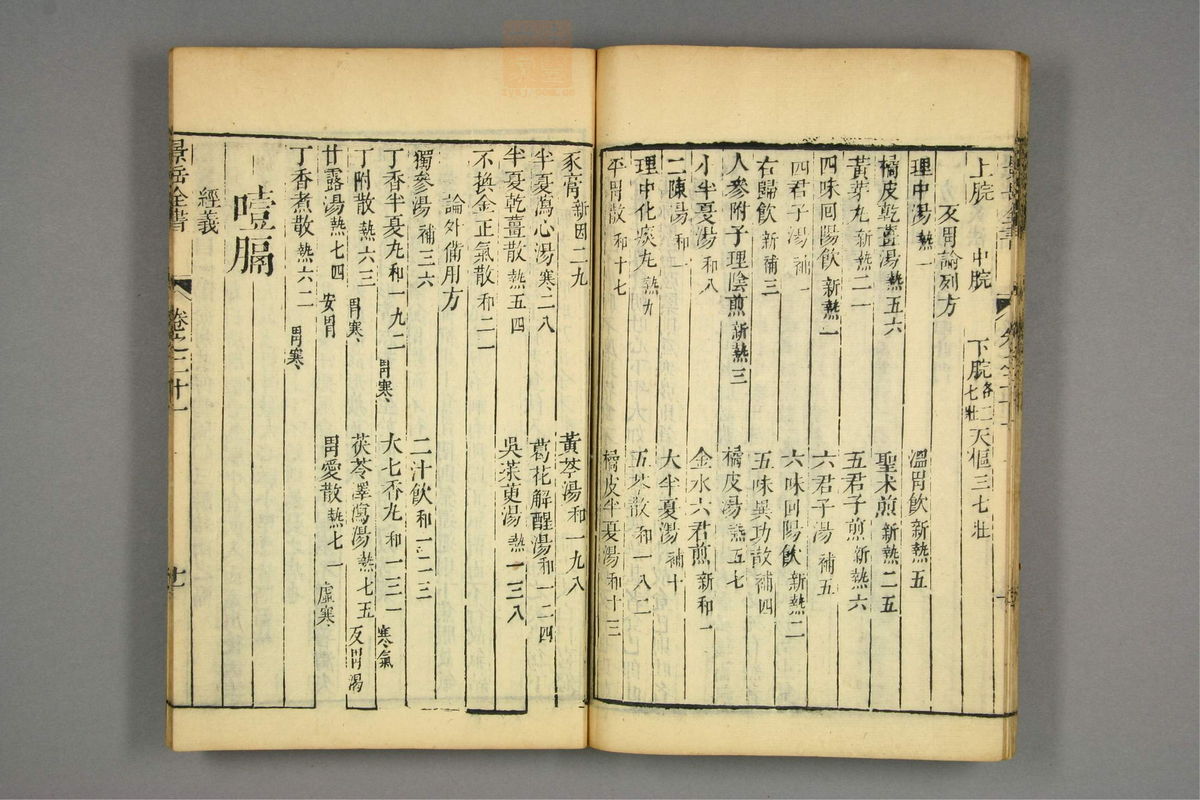 上脘　中脘　下脘各二七壯　天樞三七壯
反胃論列方
理中湯熱一　溫胃飲新熱五
橘皮乾薑湯熱五六　聖朮煎新熱二五
黃芽丸新熱二一　五君子煎新熱六
四味回陽飲新熱一　六君子湯補五
四君子湯補一　六味回陽飲新熱二
右歸飲新補三　五味異功散補四
人參附子理陰煎新熱三　橘皮湯熱五七
小半夏湯和八　金水六君煎新和一
二陳湯和一　大半夏湯補十
理中化痰丸熱九　五苓散和一八二
平胃散和十七　橘皮半夏湯和十三
豕膏新因二九　黃芩湯和一九八
半夏瀉心湯寒二八　葛花解酲湯和一二四
半夏乾薑散熱五四　吳茱萸湯熱一三八
不換金正氣散和二一
論外備用方
獨參湯補三六　二汁飲和一二三
丁香半夏丸和一九二　胃寒　大七香丸和一三一　寒氣
丁附散熱六三　胃寒　茯苓澤瀉湯熱七五　反胃渴
甘露湯熱七四　安胃　胃愛散熱七一　虛寒
丁香煮散熱六二　胃寒
噎膈
經義
景岳全書　卷之二十一